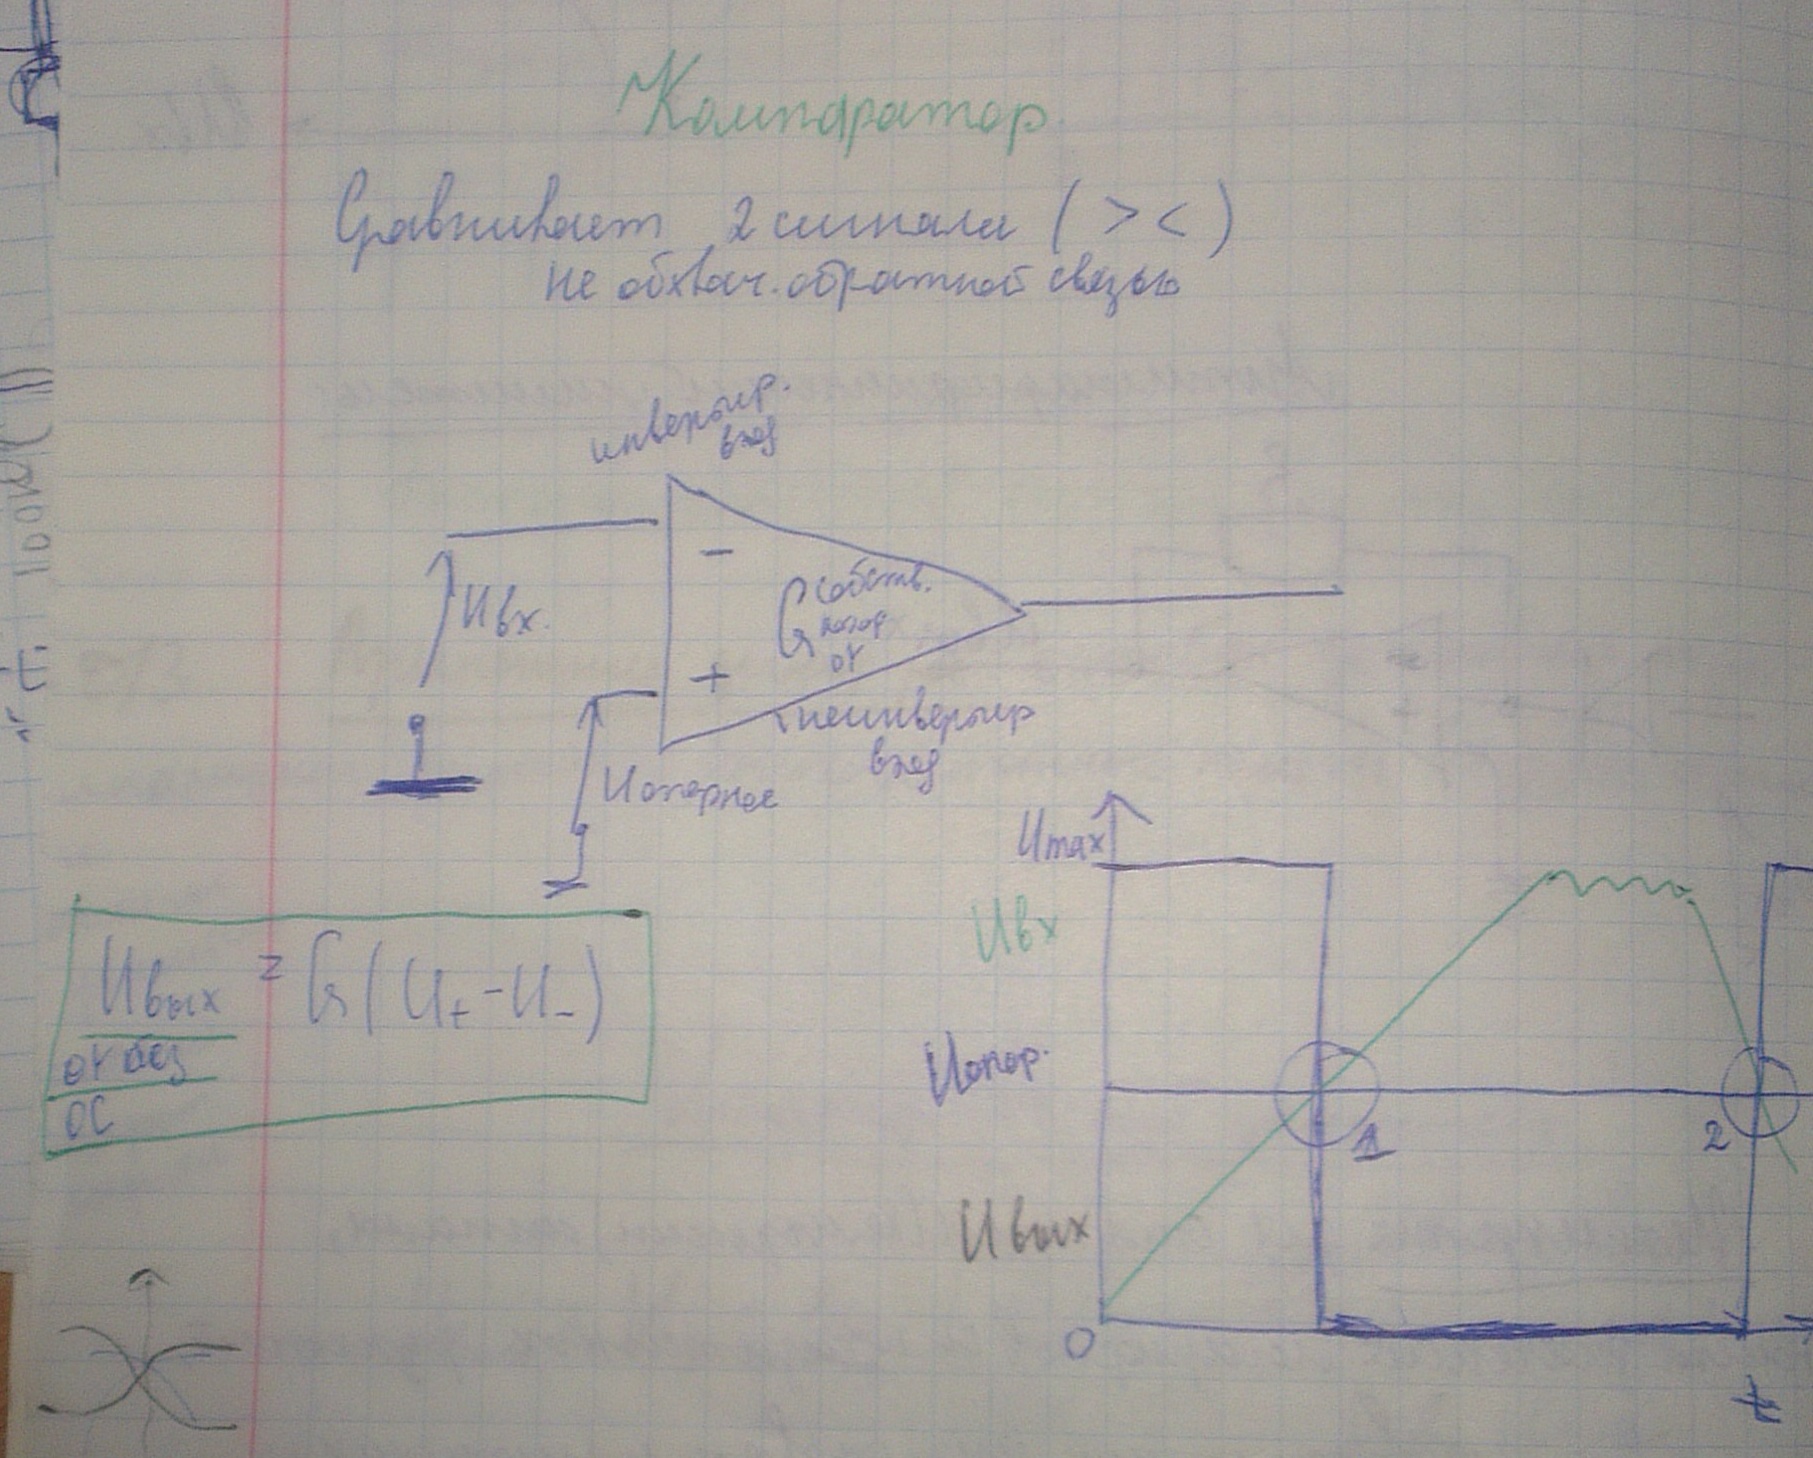 Компаратор.
Сравнивает 2 сигнала ( > < )
не обхвач. обратной связью
инвертир.
вход
−
Uвх.
G собств.
коэф
оу
+
неинвертир
вход
Uопорное
Umax
Uвх
Uвых = G ( U+ - U- )
оу без
ОС
Uопор.
1
2
Uвых
0
t